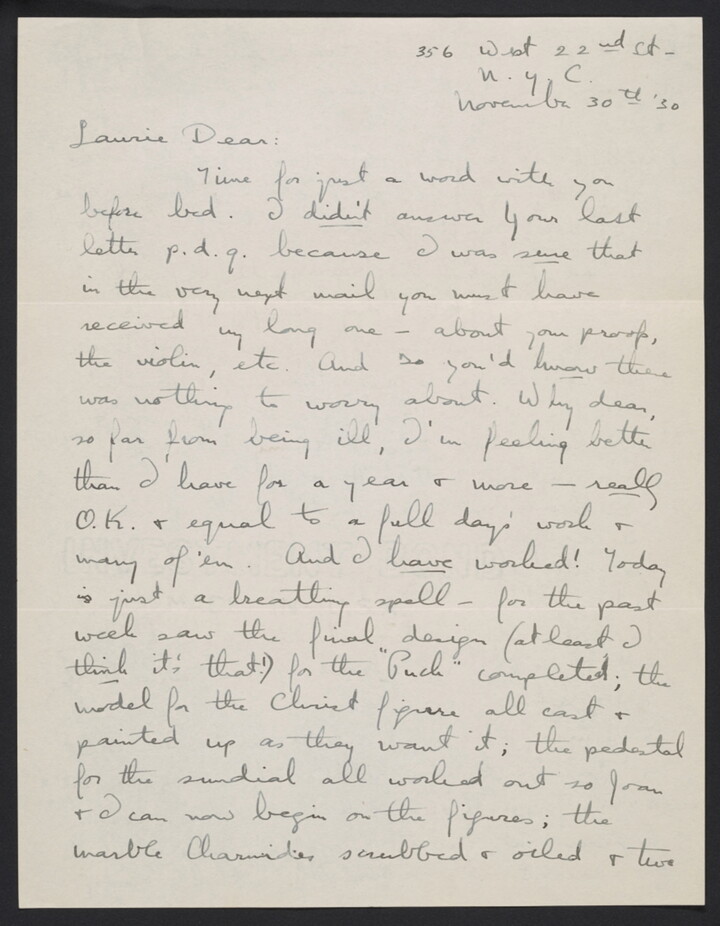 356 West 22nd St -
N. Y. C.
November 30th '30
Laurie Dear:
Time for just a word with you
before bed. I didn't answer your last
letter p.d.q. because I was sure that
in the very next mail you must have
received my long one - about your proofs,
the violin, etc. And so you'd know there
was nothing to worry about. Why dear,
so far from being ill, I'm feeling better
than I have for a year & more - really
O.K. & equal to a full day's work &
many of 'em. And I have worked! Today
is just a breathing spell - for the past
week saw the final design (at least I
think it's that!) for the "Puck" completed; the
model for the Christ figure all cast &
painted up as they want it; the pedestal
for the sundial all worked out so Joan
& I can now begin on the figures; the
marble Charmides scrubbed & oiled & two